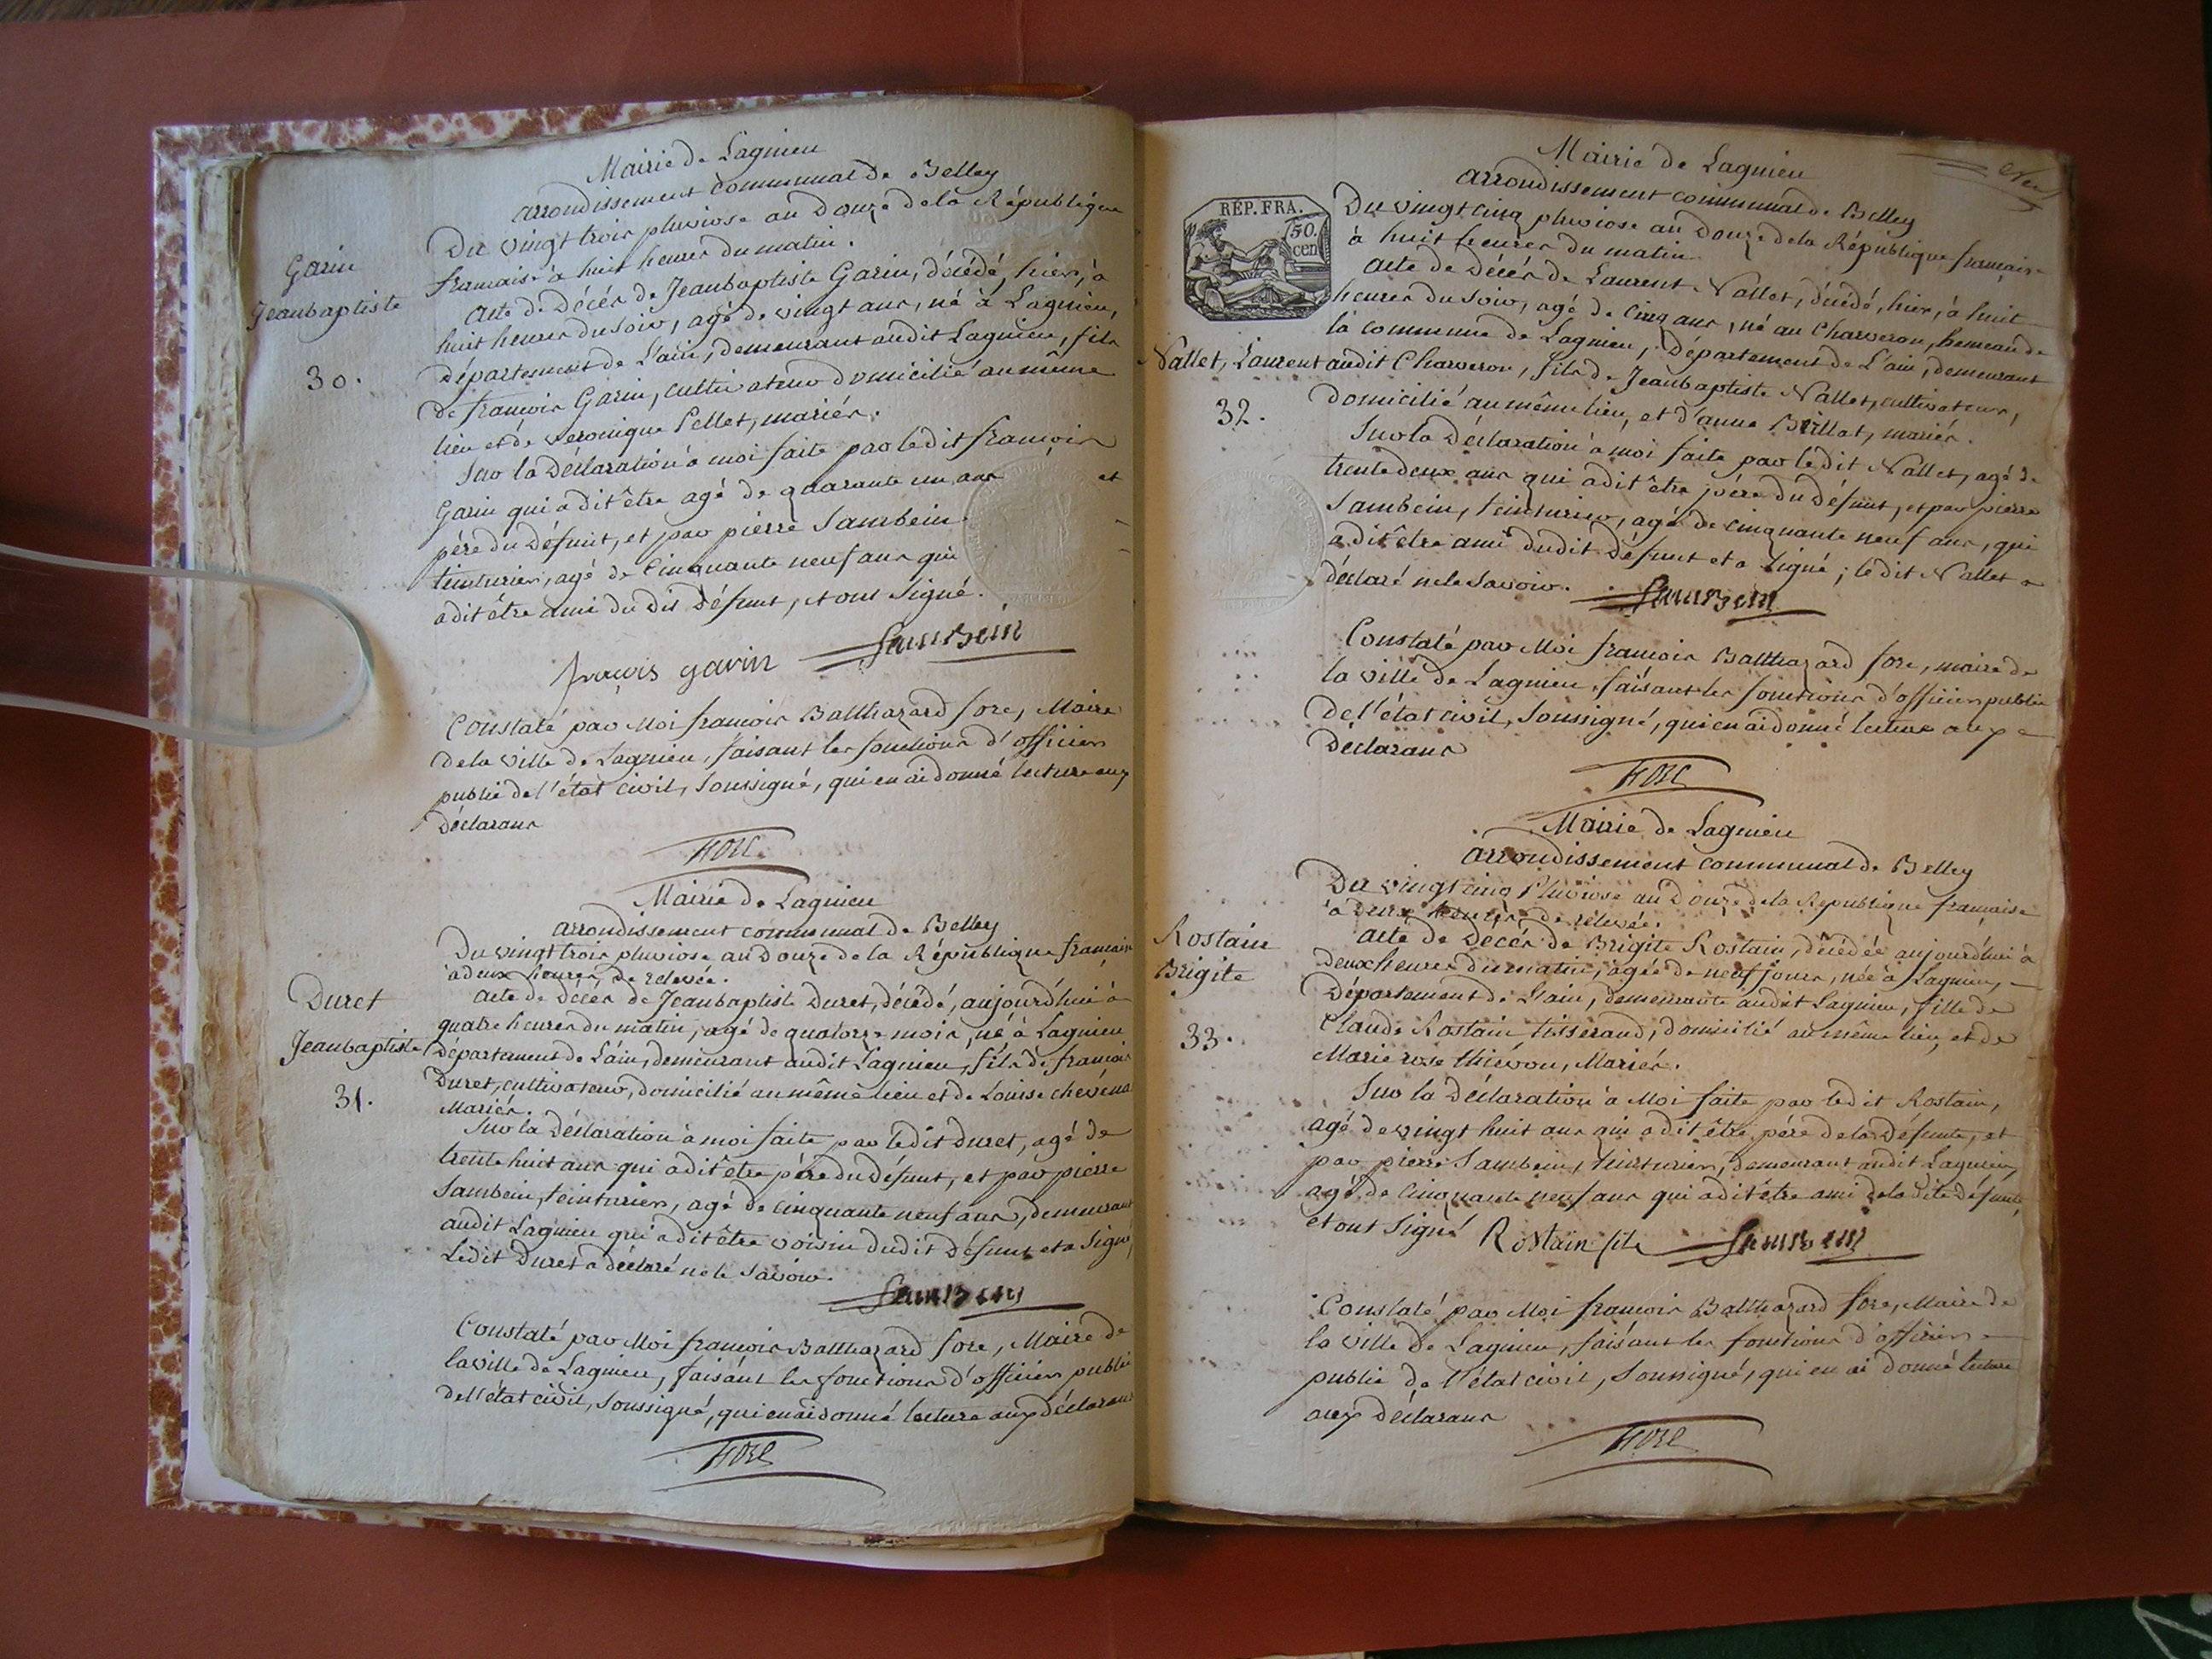 Mairie de Lagnieu
arrondissement communal de Belley
Du vingt trois pluviose an Douze de la République
francaise à huit heures du matin.
Garin
Jeanbaptiste
30.
Acte de Décès de Jeanbaptiste Garin, décédé, hier, à
huit heures du soir, agé de vingt ans, né à Lagnieu,
Département de L'ain, demeurant audit Lagnieu, fils
de francois Garin, cultivateur domicilié au même
lieu et de veronique Pellet, mariés.
Sur la Déclaration à moi faite par ledit francois
Garin qui a dit être agé de quarante un ans et
pére du Défunt, et par pierre Sambein
teinturier, agé de Cinquante neuf ans qui
a dit être ami du dit Défunt, et ont Signé.
francois garin SamBein
Constaté par Moi francois Balthazard fore, Maire
de la ville de Lagnieu, faisant les fonctions d'officier
public de l'état civil, Soussigné, qui en ai donné lecture aux
Déclarans
FORE
Mairie de Lagnieu
arrondissement communal de Belley
Du vingt trois pluviose an Douze de la République francaise
à deux heures de relevée.
Duret
Jeanbaptiste
31.
Acte de Décès de Jeanbaptiste Duret, décédé, aujourd'hui à
quatre heures du matin, agé de quatorze mois, né à Lagnieu
Département de L'ain, demeurant audit Lagnieu, fils de francois
Duret, cultivateur, domicilié au même lieu et de Louise
Mariés.
Sur la Déclaration à moi faite par ledit Duret, agé de
trente huit ans qui a dit être pére du Défunt, et par pierre
Sambein, teinturier, agé de cinquante neuf ans, demeurant
audit Lagnieu qui a dit être voisin dudit Défunt et a Signé,
Ledit Duret a déclaré ne le Savoir.
SamBein
Constaté par Moi francois Balthazard fore, Maire de
la ville de Lagnieu, faisant les fonctions d'officier public
de l'état civil, Soussigné, qui en ai donné lecture aux Déclarans
FORE
Mairie de Lagnieu
arrondissement communal de Belley
REP. FRA.
50.
cen
Du vingt cinq pluviose an Douze de la République francaise
à huit heures du matin.
Acte de Décès de Laurent Nallet, décédé, hier, à huit
heures du soir, agé de Cinq ans, né au Charveron, hameau de
la commune de Lagnieu, Département de L'ain, demeurant
Nallet, Laurent
32.
audit Charveron, fils de Jeanbaptiste Nallet, cultivateur,
Domicilié au même lieu, et d'anne Billat, mariés.
Sur la Déclaration à moi faite par ledit Nallet, agé de
trente deux ans qui a dit être pére du Défunt, et par pierre
Sambein, teinturier, agé de cinquante neuf ans, qui
a dit être ami dudit Défunt et a Signé; ledit Nallet a
déclaré ne le Savoir. SamBein
Constaté par Moi francois Balthazard fore, maire de
la ville de Lagnieu, faisant les fonctions d'officier public
de l'état civil, Soussigné, qui en ai donné lecture aux
Déclarans
FORE
Mairie de Lagnieu
arrondissement communal de Belley
Du vingt cinq Pluviose an Douze de la République francaise
à deux heures de relevée.
Rostain
Brigite
33.
Acte de Décès de Brigite Rostain, décédée aujourd'hui à
deux heures du matin, agée de neuf jours, née à Lagnieu,
Département de L'ain, demeurante audit Lagnieu, fille de
Claude Rostain tisserand, domicilié au même lieu, et de
Marie rose, Mariés.
Sur la Déclaration à Moi faite par ledit Rostain,
agé de vingt huit ans qui a dit être pére de la Défunte, et
par pierre Sambein, teinturier, demeurant audit Lagnieu,
agé de Cinquante neuf ans qui a dit être ami de la dite Défunte,
et ont Signé Rostain fils SamBein
Constaté par Moi francois Balthazard fore, Maire de
la ville de Lagnieu, faisant les fonctions d'officier
public de l'état civil, Soussigné, qui en ai donné lecture
aux Déclarans
FORE